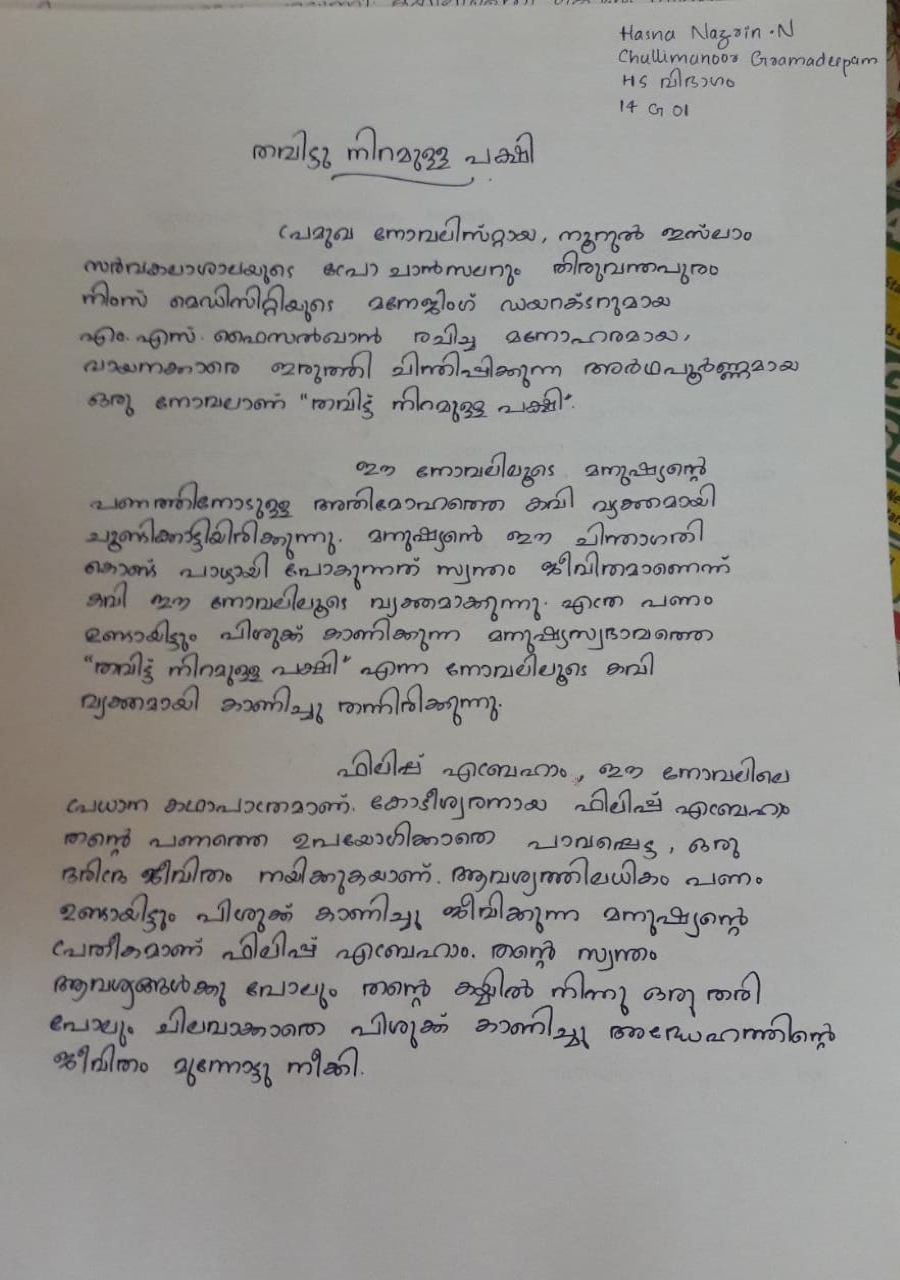 Hasna Nazrin .N
Chullimanoor Gramadeepam
HS വിഭാഗം
14 G 01
തവിട്ടു നിറമുള്ള പക്ഷി
പ്രമുഖ നോവലിസ്റ്റായ, നൂറുൽ ഇസ്ലാം
സർവകലാശാലയുടെ പ്രോ ചാൻസലറും തിരുവന്തപുരം
നിംസ് മെഡിസിറ്റിയുടെ മനേജിംഗ് ഡയറക്ടറുമായ
എം. എസ്. ഫൈസൽഖാൻ രചിച്ച മനോഹരമായ,
വായനക്കാരെ ഇരുത്തി ചിന്തിപ്പിക്കുന്ന അർഥപൂർണ്ണമായ
ഒരു നോവലാണ് "തവിട്ട് നിറമുള്ള പക്ഷി".
ഈ നോവലിലൂടെ മനുഷ്യന്റെ
പണത്തിനോടുള്ള അതിമോഹത്തെ കവി വ്യക്തമായി
ചൂണ്ടിക്കാട്ടിയിരിക്കുന്നു. മനുഷ്യന്റെ ഈ ചിന്താഗതി
കൊണ്ട് പാഴായി പോകുന്നത് സ്വന്തം ജീവിതമാണെന്ന്
കവി ഈ നോവലിലൂടെ വ്യക്തമാക്കുന്നു. എത്ര പണം
ഉണ്ടായിട്ടും പിശുക്ക് കാണിക്കുന്ന മനുഷ്യസ്വഭാവത്തെ
"തവിട്ട് നിറമുള്ള പക്ഷി" എന്ന നോവലിലൂടെ കവി
വ്യക്തമായി കാണിച്ചു തന്നിരിക്കുന്നു.
ഫിലിപ്പ് എബ്രഹാം, ഈ നോവലിലെ
പ്രധാന കഥാപാത്രമാണ്. കോടീശ്വരനായ ഫിലിപ്പ് എബ്രഹാം
തന്റെ പണത്തെ ഉപയോഗിക്കാതെ പാവപ്പെട്ട, ഒരു
ദരിദ്ര ജീവിതം നയിക്കുകയാണ്. ആവശ്യത്തിലധികം പണം
ഉണ്ടായിട്ടും പിശുക്ക് കാണിച്ചു ജീവിക്കുന്ന മനുഷ്യന്റെ
പ്രതീകമാണ് ഫിലിപ്പ് എബ്രഹാം. തന്റെ സ്വന്തം
ആവശ്യങ്ങൾക്കു പോലും തന്റെ കയ്യിൽ നിന്നു ഒരു തരി
പോലും ചിലവാക്കാതെ പിശുക്ക് കാണിച്ചു അദ്ധേഹത്തിന്റെ
ജീവിതം മുന്നോട്ടു നീക്കി.